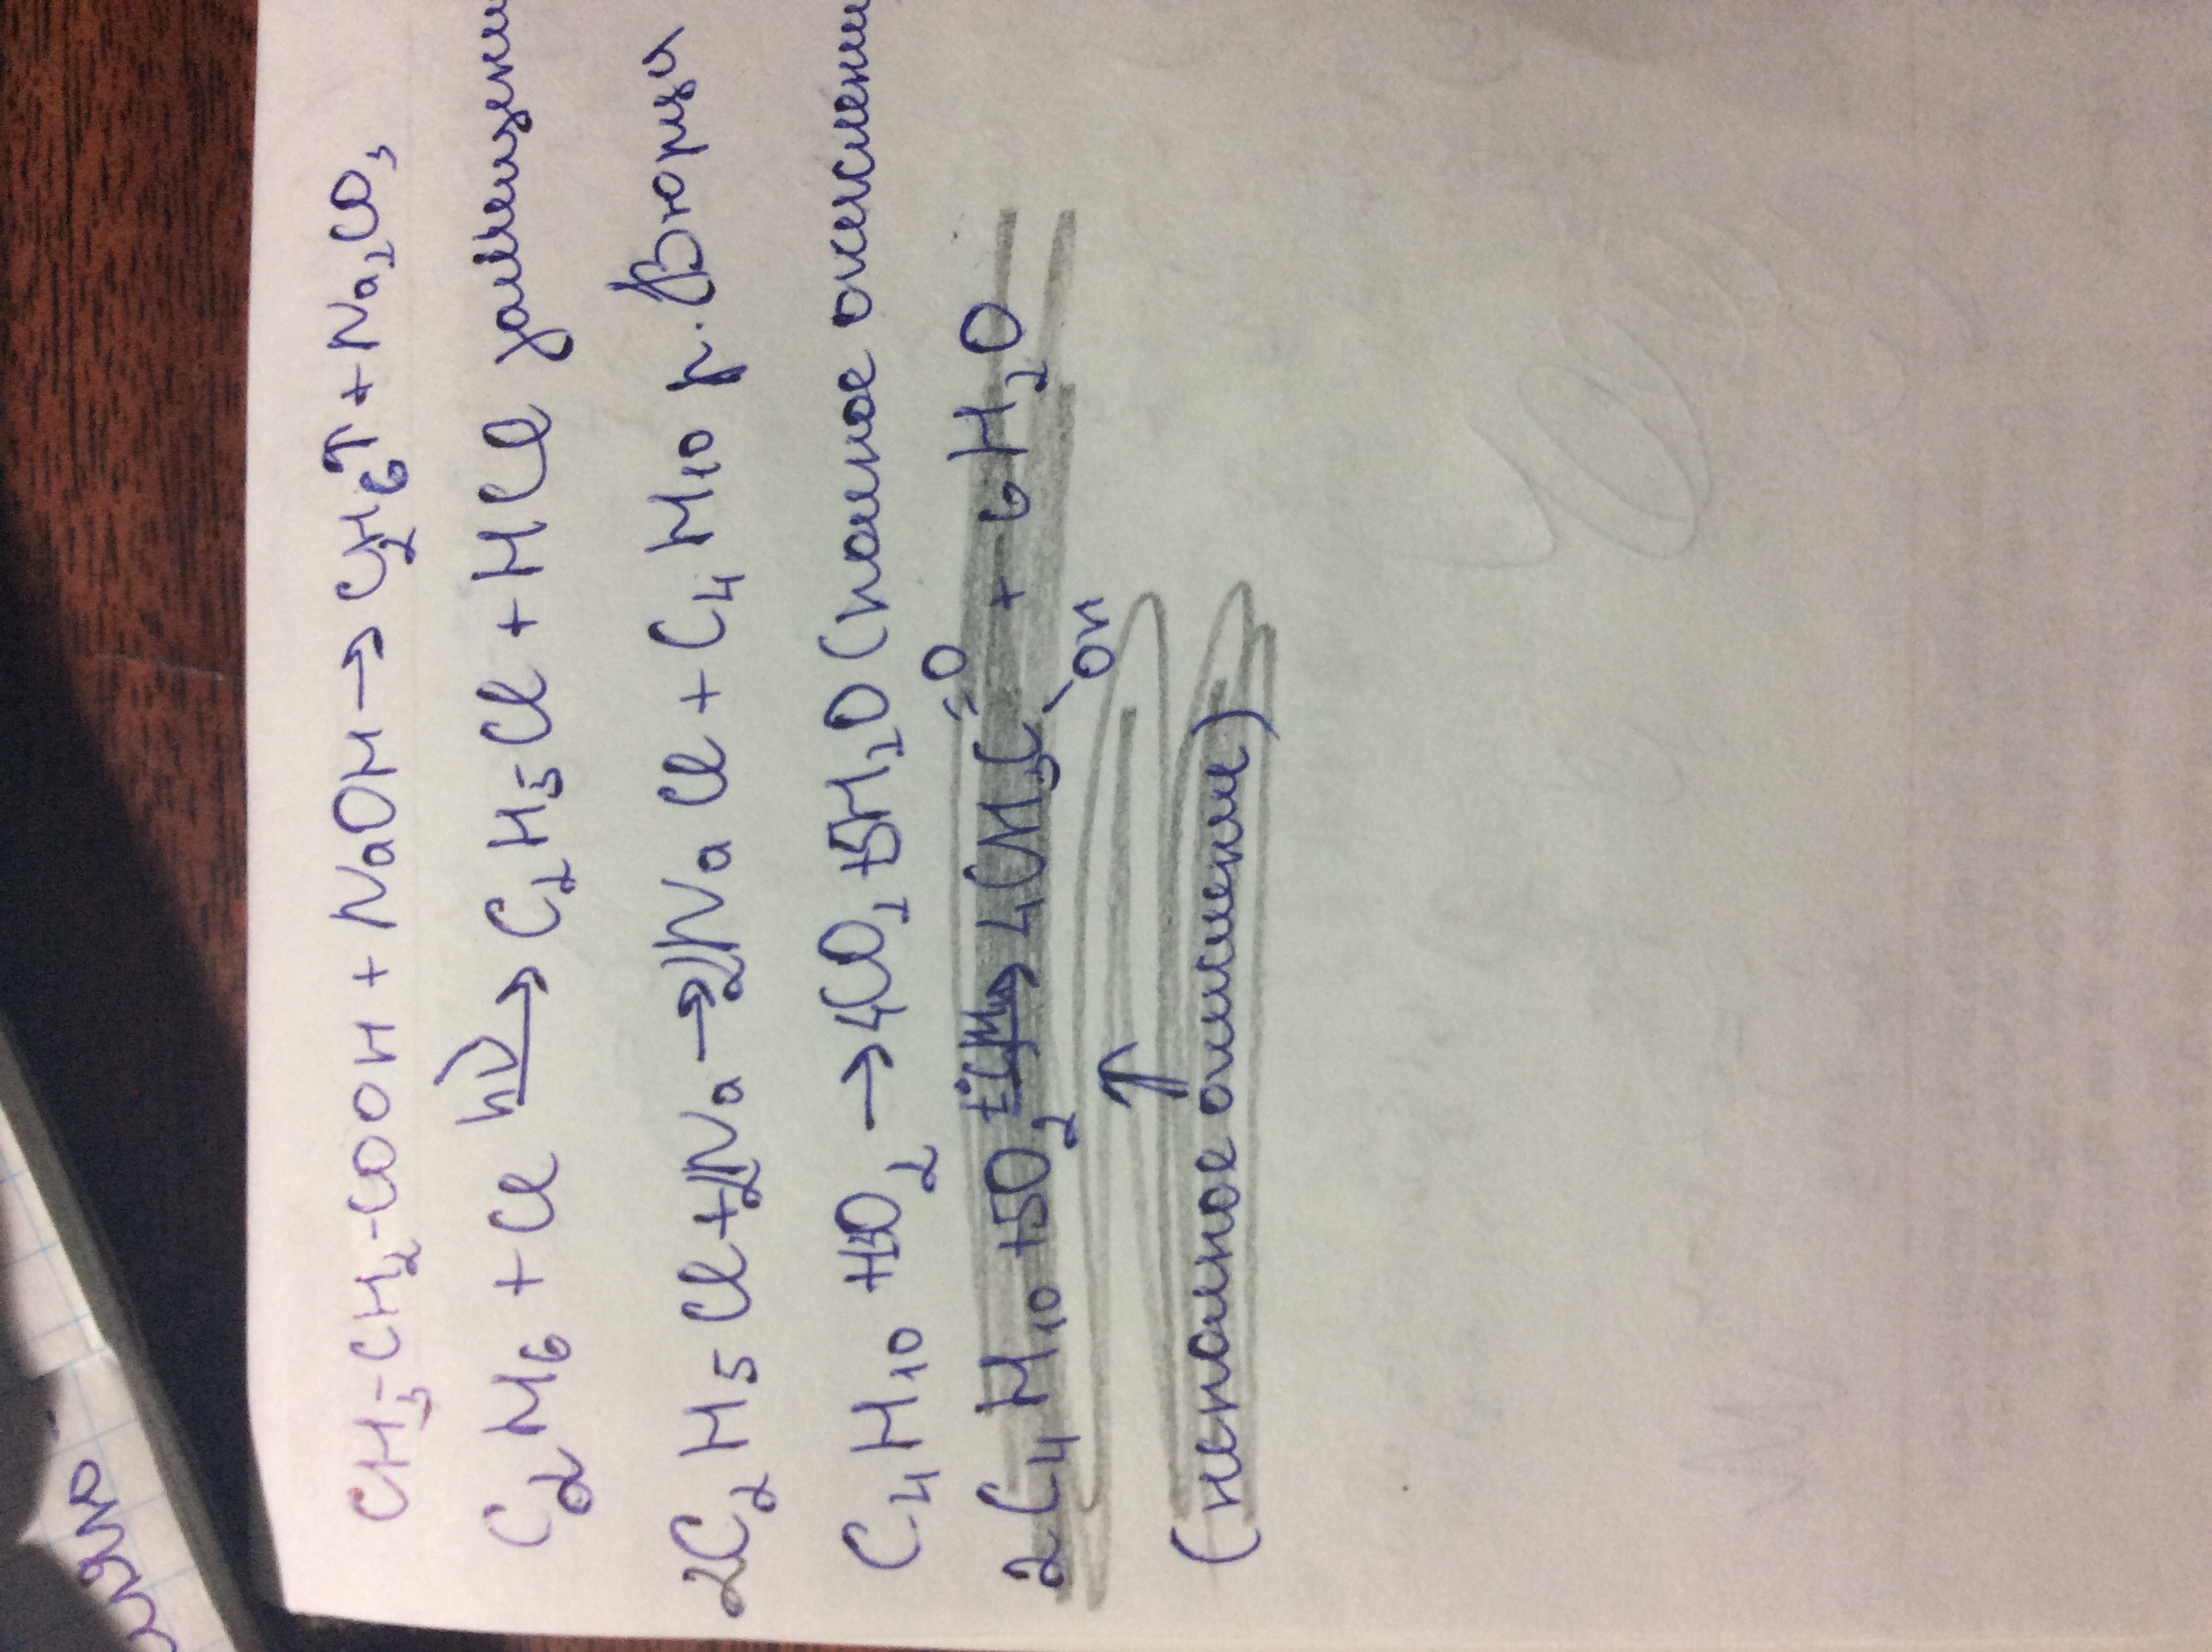 CH₃-CH₂-COOH + NaOH → C₂H₆↑ + Na₂CO₃
C₂H₆ + Cl hν→ C₂H₅Cl + HCl
2C₂H₅Cl + 2Na → 2NaCl + C₄H₁₀ р. Вюрца
C₄H₁₀ + O₂ → 4CO₂ + 5H₂O (полное
2C₄H₁₀ + 5O₂ → 4CH₃C + 6H₂O
=O
OH
↑
(неполное окисление)